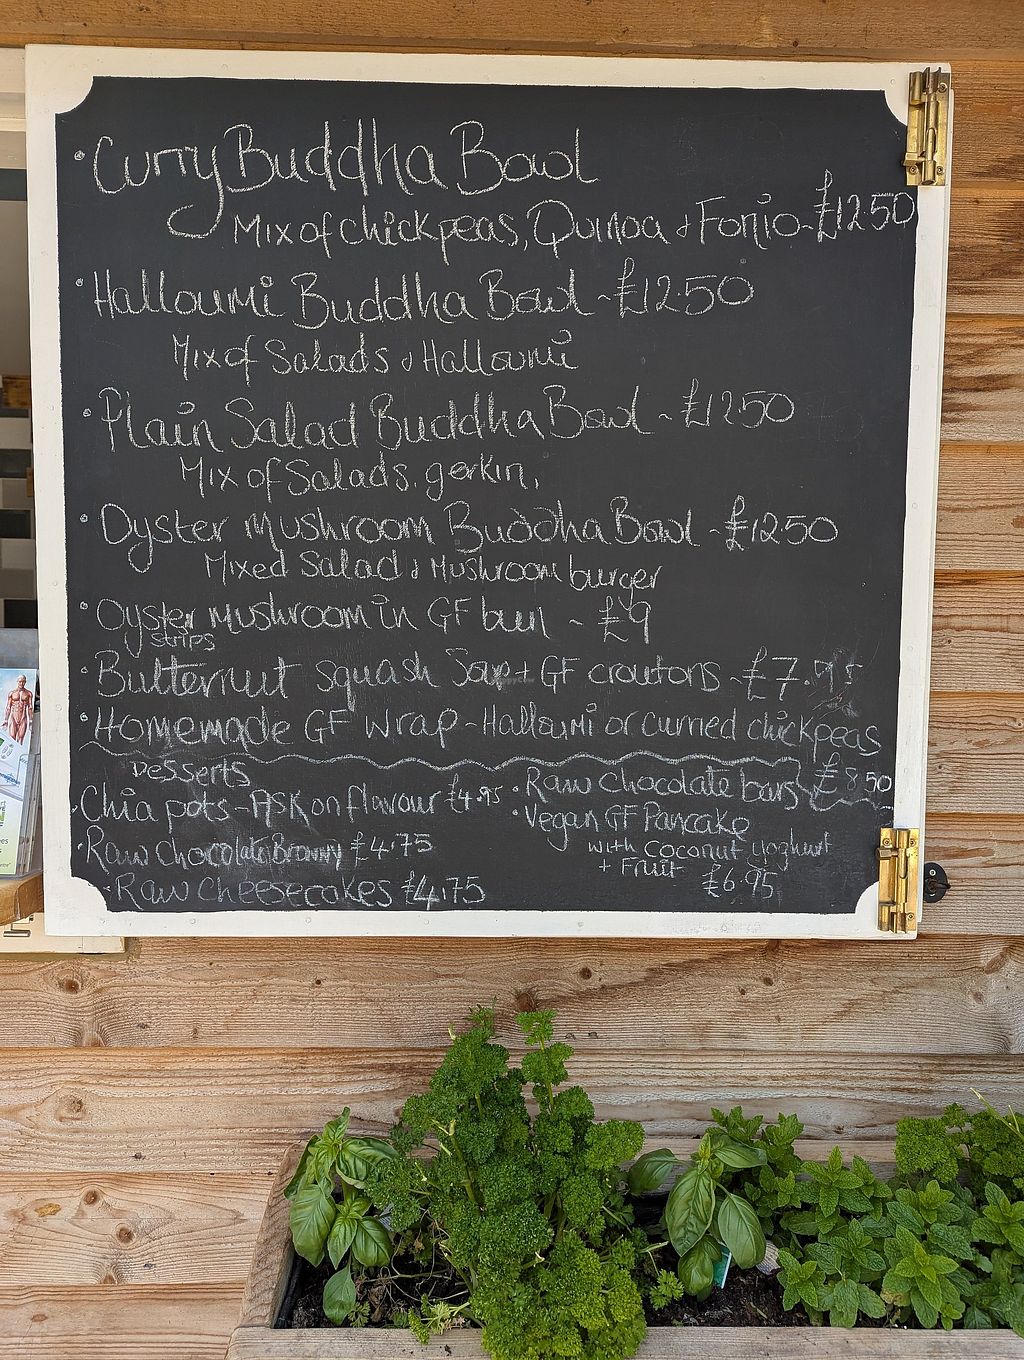 • Curry Buddha Bowl
Mix of chickpeas, Quinoa + Fonio - £12.50
• Halloumi Buddha Bowl - £12.50
Mix of Salads + Halloumi
• Plain Salad Buddha Bowl - £12.50
Mix of Salads. gerkin,
• Oyster mushroom Buddha Bowl - £12.50
Mixed Salad + Mushroom burger
• Oyster mushroom in GF bun - £9
strips
• Butternut squash Soup + GF croutons - £7.95
• Homemade GF wrap - Halloumi or curried chickpeas
£8.50
Desserts
• Chia pots - ASK on flavour £4.95
• Raw Chocolate Browny £4.75
• Raw Cheesecakes £4.75
• Raw chocolate bars
• Vegan GF Pancake
with coconut yoghurt
+ Fruit
£6.95